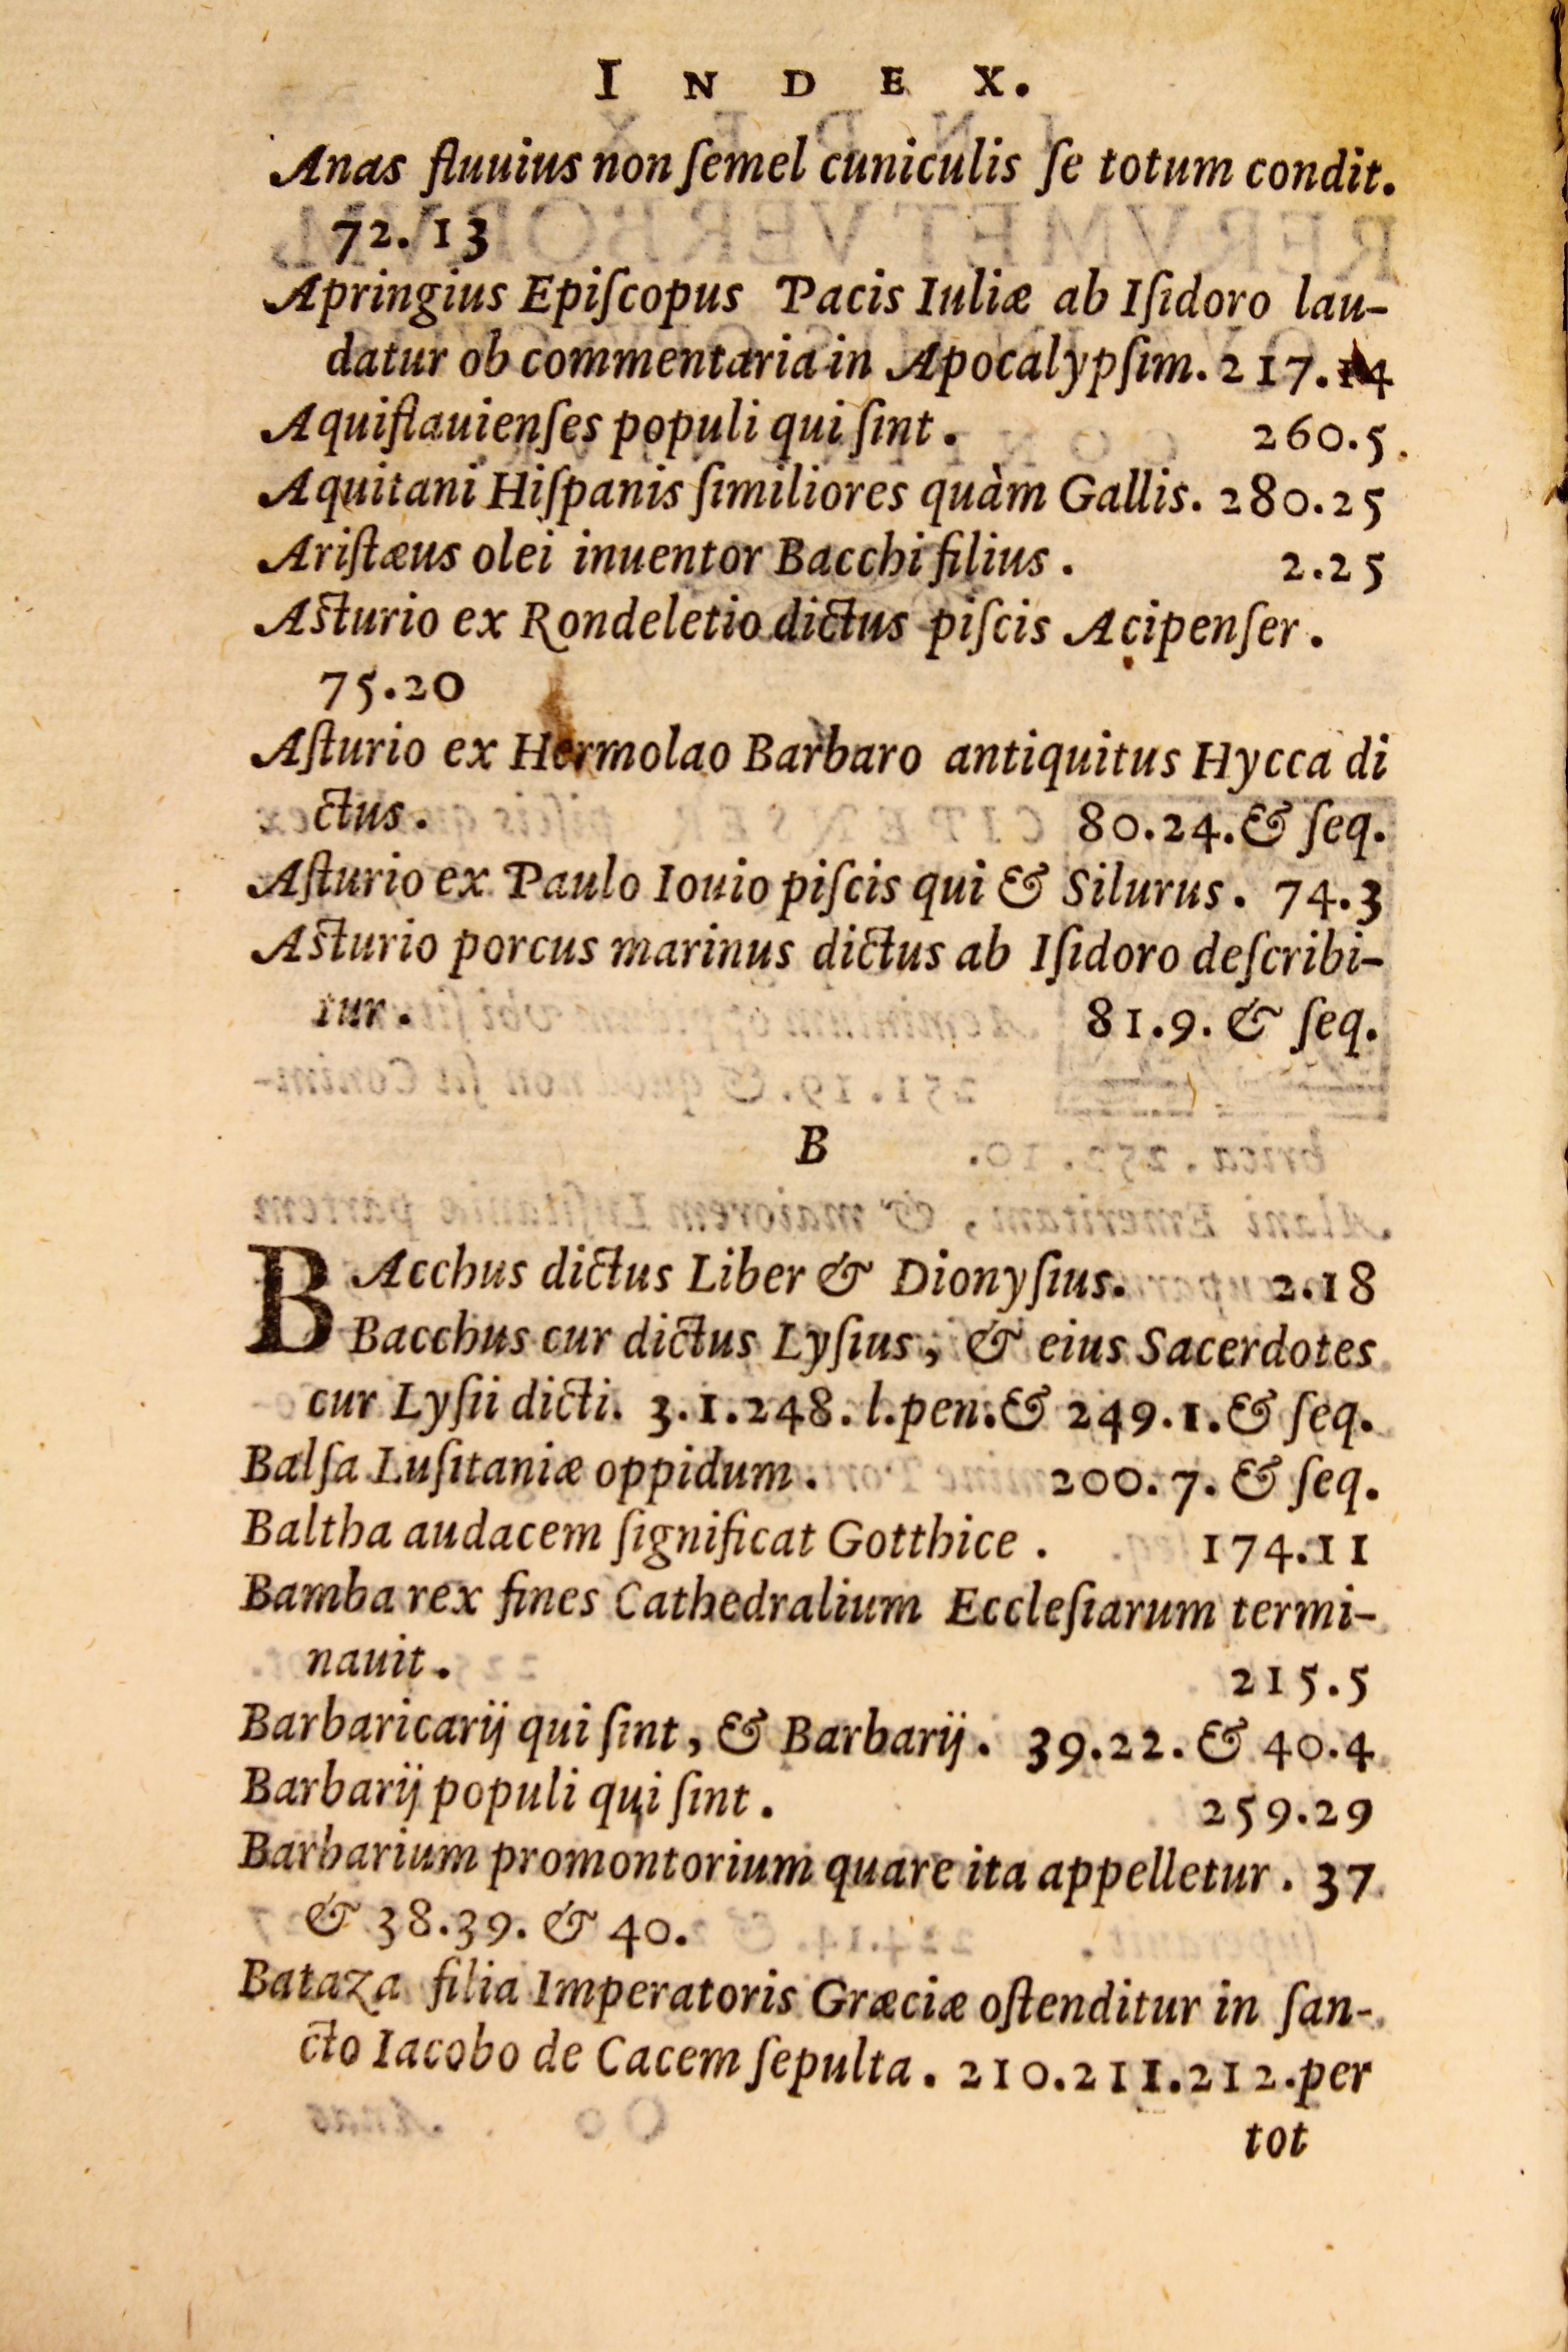 INDEX.
Anas fluuius non ſemel cuniculis ſe totum condit.
72.13
Apringius Epiſcopus Pacis Iuliæ ab Iſidoro lau-
datur ob commentaria in Apocalypſim. 217.14
Aquiflauienſes populi qui ſint. 260.5
Aquitani Hiſpanis ſimiliores quàm Gallis. 280.25
Ariſtæus olei inuentor Bacchi filius. 2.25
Aſturio ex Rondeletio dictus piſcis Acipenſer.
75.20
Aſturio ex Hermolao Barbaro antiquitus Hycca di
ctus. 80.24.& ſeq.
Aſturio ex Paulo Iouio piſcis qui & Silurus. 74.3
Aſturio porcus marinus dictus ab Iſidoro deſcribi-
tur. 81.9. & ſeq.
B
BAcchus dictus Liber & Dionyſius. 2.18
Bacchus cur dictus Lyſius, & eius Sacerdotes
cur Lyſii dicti. 3.1.248. l.pen.& 249.1.& ſeq.
Balſa Luſitaniæ oppidum. 200.7. & ſeq.
Baltha audacem ſignificat Gotthice. 174.11
Bamba rex fines Cathedralium Eccleſiarum termi-
nauit. 215.5
Barbaricarij qui ſint, & Barbarij. 39.22. & 40.4
Barbarij populi qui ſint. 259.29
Barbarium promontorium quare ita appelletur. 37
& 38.39. & 40.
Bataza filia Imperatoris Græciæ oſtenditur in ſan-
cto Iacobo de Cacem ſepulta. 210.211.212.per
tot